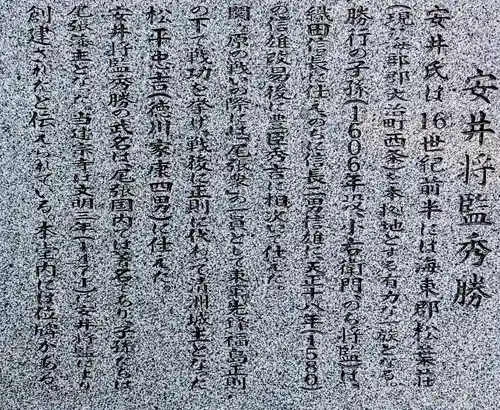 安井将監秀勝
安井氏は16世紀前半には海東郡松葉荘
(現海部郡大治町西条)を本拠地とする有力な一族となる。
勝行の子孫(1606年没、小右衛門、のち将監)は、
織田信長に仕え、のちに信長二男信雄に、天正十八年(1580)
の信雄改易後は豊臣秀吉に相次いで仕えた。
関ヶ原の戦いの際には尾張衆の一員として東軍先鋒福島正則
の下で戦功を挙げ、戦後に正則に代わって清州城主となった
松平忠吉(徳川家康四男)に仕えた。
安井将監秀勝の武名は尾張国内では著名であり子孫たちは
尾張藩士となった。当建宗寺は文明三年(1471)に安井将監により
創建されたと伝えられている。本堂内には位牌がある。